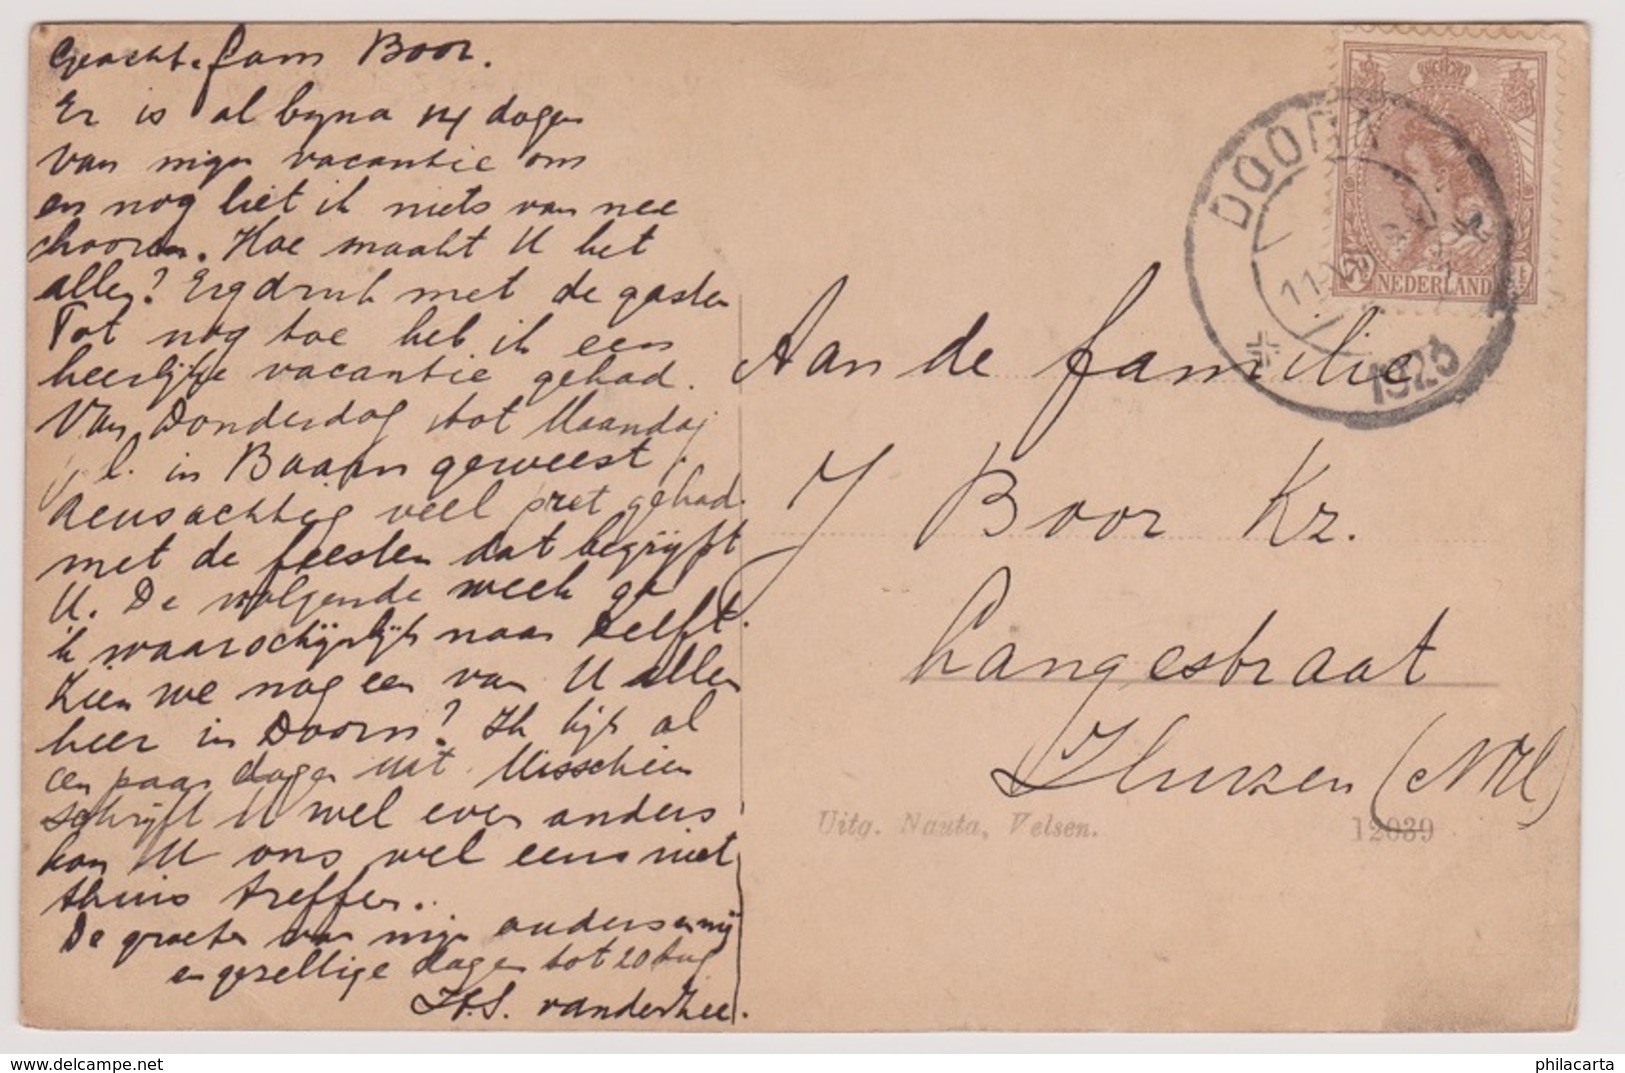 Geacht. fam Boor.
Er is al byna 14 dagen
van mijn vacantie om
en nog liet ik niets van mee
hooren. Hoe maakt U het
allen? Erg druk met de gasten
Tot nog toe heb ik een
heerlijke vacantie gehad.
Van Donderdag tot Maandag
j.l. in Baarn geweest.
Reusachtig veel pret gehad.
met de feesten dat begrijpt
U. De volgende week ga
ik waarschijnlijk naar Delft.
Zien we nog een van U allen
heer in Doorn? Ik kijk al
een paar dagen uit. Misschien
schrijft U wel even anders
kon U ons wel eens niet
thuis treffen.
De groeten van mijn ouders en mij
en gezellige dagen tot 20 Aug
H.S. van der Lee.
Aan de familie
J Boor Kz.
Langestraat
Huizen (N.H)
Uitg. Nauta, Velsen. 12039
DOORN
1923
NEDERLAND
7½
philacarta